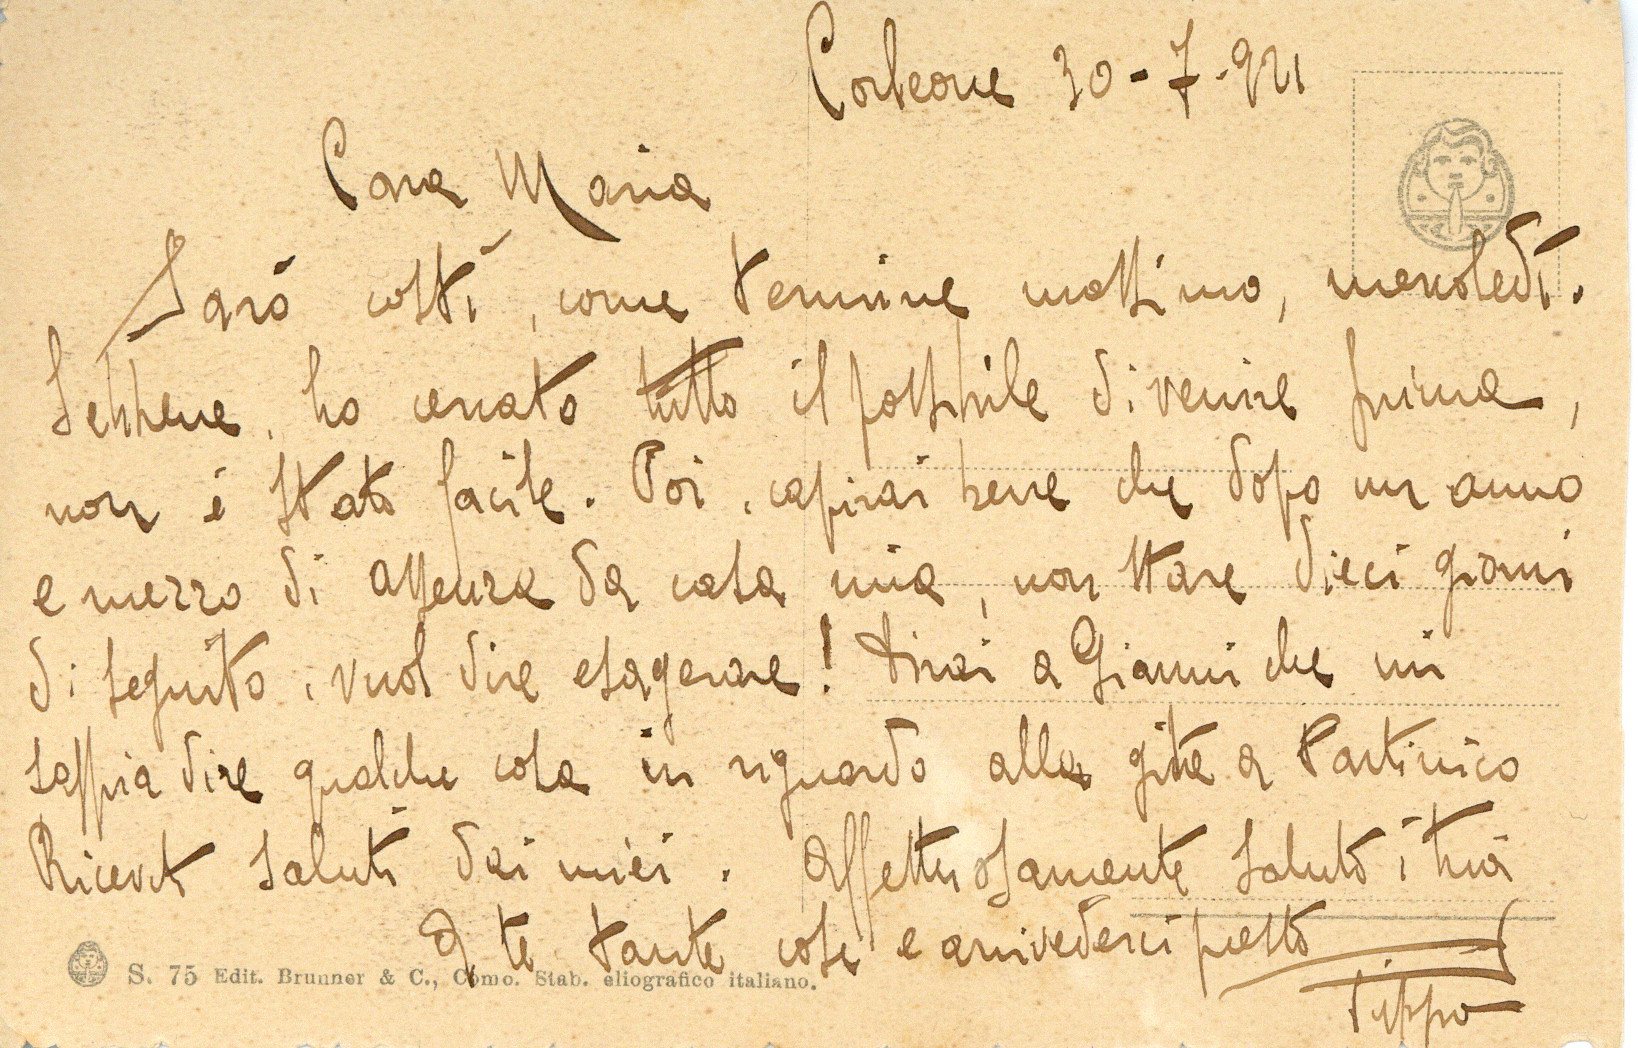 Corleone 30-7-921
Cara Maria
Sarò costì, come termine massimo, mercoledì.
Sebbene, ho cercato tutto il possibile di venire prima,
non è stato facile. Poi, capirai bene che dopo un anno
e mezzo di assenza da casa mia, non stare dieci giorni
di seguito, vuol dire esagerare! Dirai a Gianni che mi
sappia dire qualche cosa in riguardo alla gita a Partinico
Ricevete saluti dai miei. Affettuosamente saluto i tuoi
A te tante cose e arrivederci presto
S. 75 Edit. Brunner & C., Como. Stab. eliografico italiano.